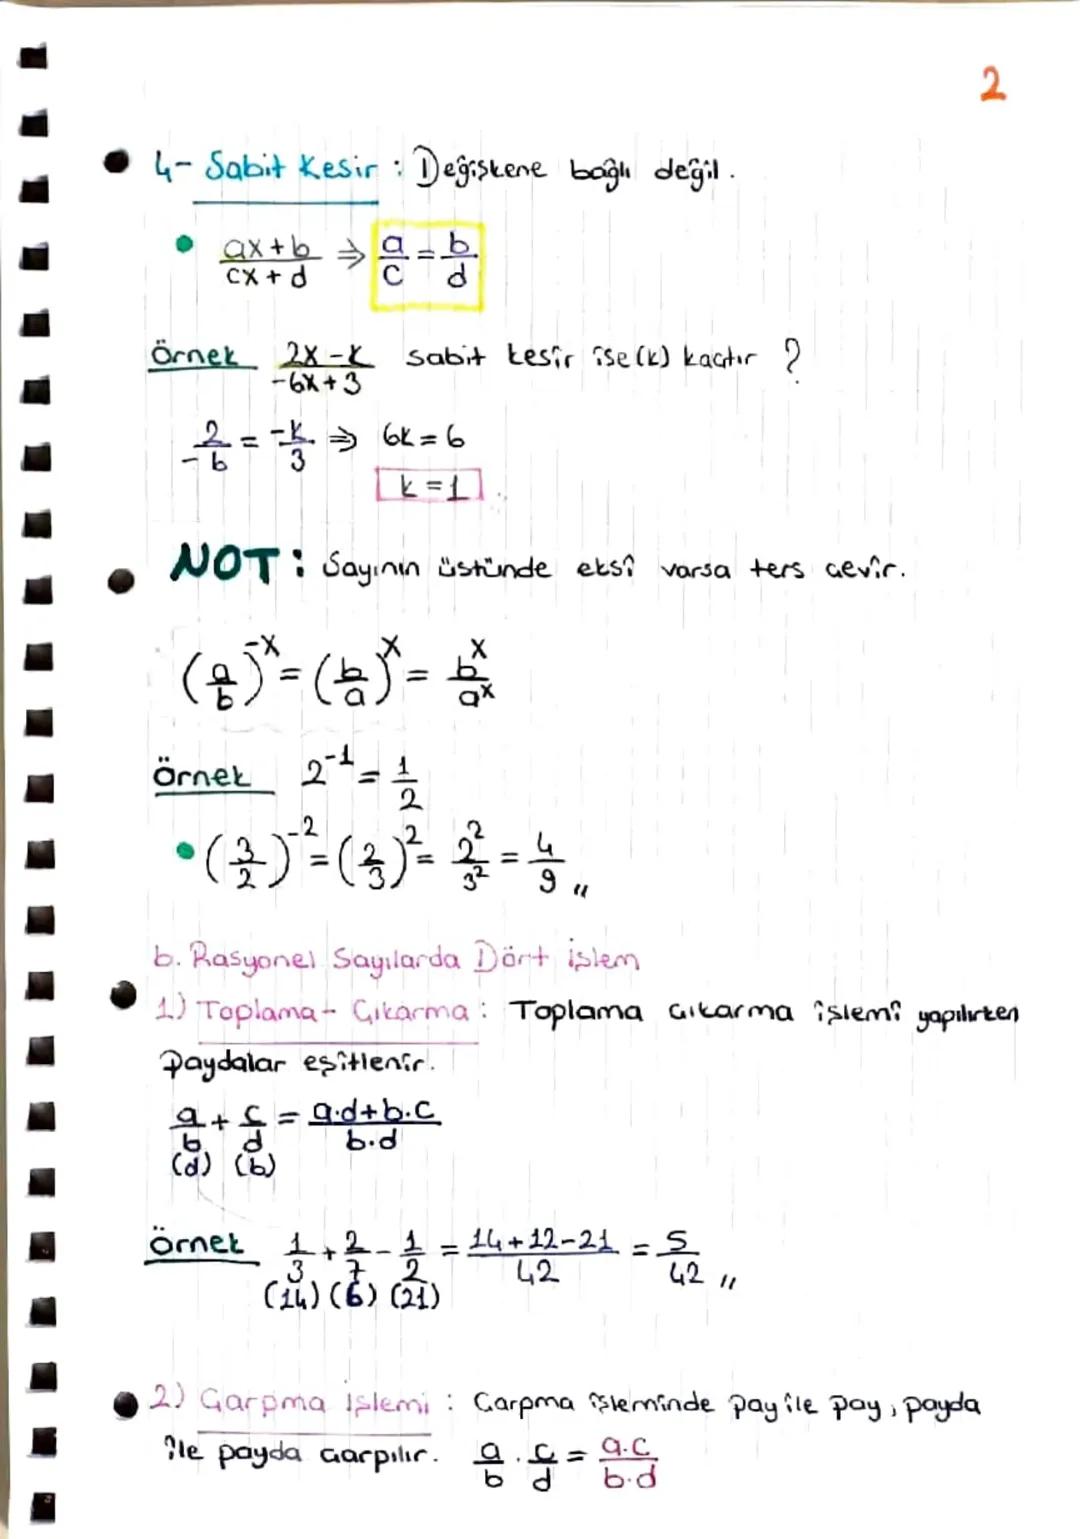 2
4- Sabit Kesir : Değişkene bağlı değil.
ax+b / cx+d ⇒ a/c = b/d
Örnek 2x-k / -6x+3 sabit kesir ise (k) kaçtır ?
2/-6 = -k/3 ⇒ 6k=6
k=1
NOT: Sayının üstünde eksi varsa ters çevir.
(a/b)^-x = (b/a)^x = b^x/a^x
Örnek 2^-1 = 1/2
(3/2)^-2 = (2/3)^2 = 2^2/3^2 = 4/9 ,,
b. Rasyonel Sayılarda Dört işlem
1) Toplama- Çıkarma : Toplama çıkarma işlemi yapılırken
Paydalar eşitlenir.
a/b + c/d = a.d+b.c / b.d
(d) (b)
Örnek 1/3 + 2/7 - 1/2 = 14+12-21 / 42 = 5/42 ,,
(14) (6) (21)
2) Çarpma işlemi : Çarpma işleminde pay ile pay, payda
ile payda çarpılır. a/b . c/d = a.c / b.d